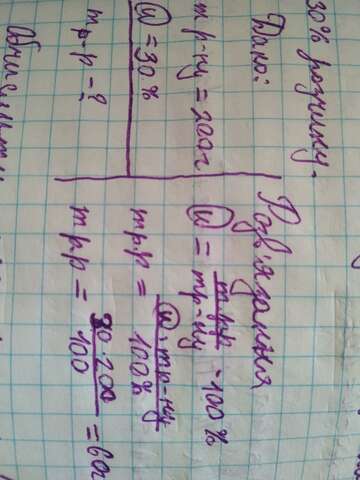 30% розчину.
Дано:
m р-ну = 200г
ω = 30%
m р.р - ?
Розв'язання
ω = m р.р / m р-ну · 100%
m р.р = ω · m р-ну / 100%
m р.р = 30 · 200 / 100 = 60г